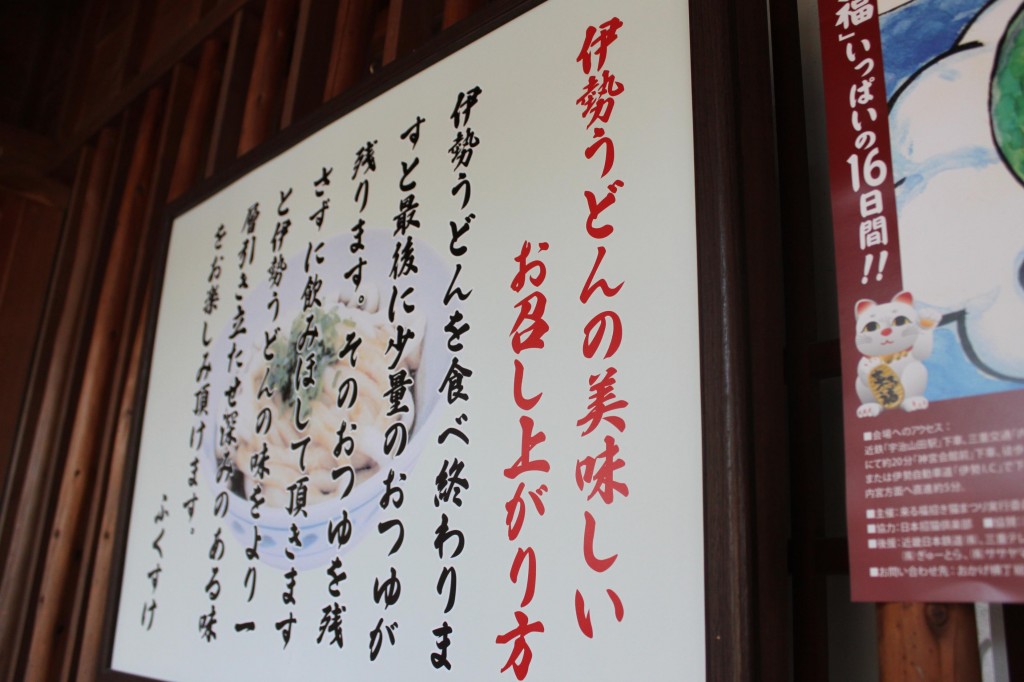 福」いっぱいの16日間!!
伊勢うどんの美味しい
お召し上がり方
伊勢うどんを食べ終わりま
すと最後に少量のおつゆが
残ります。そのおつゆを残
さずに飲みほして頂きます
と伊勢うどんの味をより一
層引き立たせ深みのある味
をお楽しみ頂けます。
ふくすけ
■会場へのアクセス：
近鉄「宇治山田駅」下車、三重交通
にて約20分「神宮会館前」下車、徒歩
または伊勢自動車道「伊勢I.C」で下
内宮方面へ直進約5分。
■主催：来る福招き猫まつり実行委
■協力：日本招猫倶楽部 ■協賛：
■後援：近畿日本鉄道㈱、三重テレ
㈱ぎゅーとら、㈱ササヤ
■お問い合わせ先：おかげ横丁総